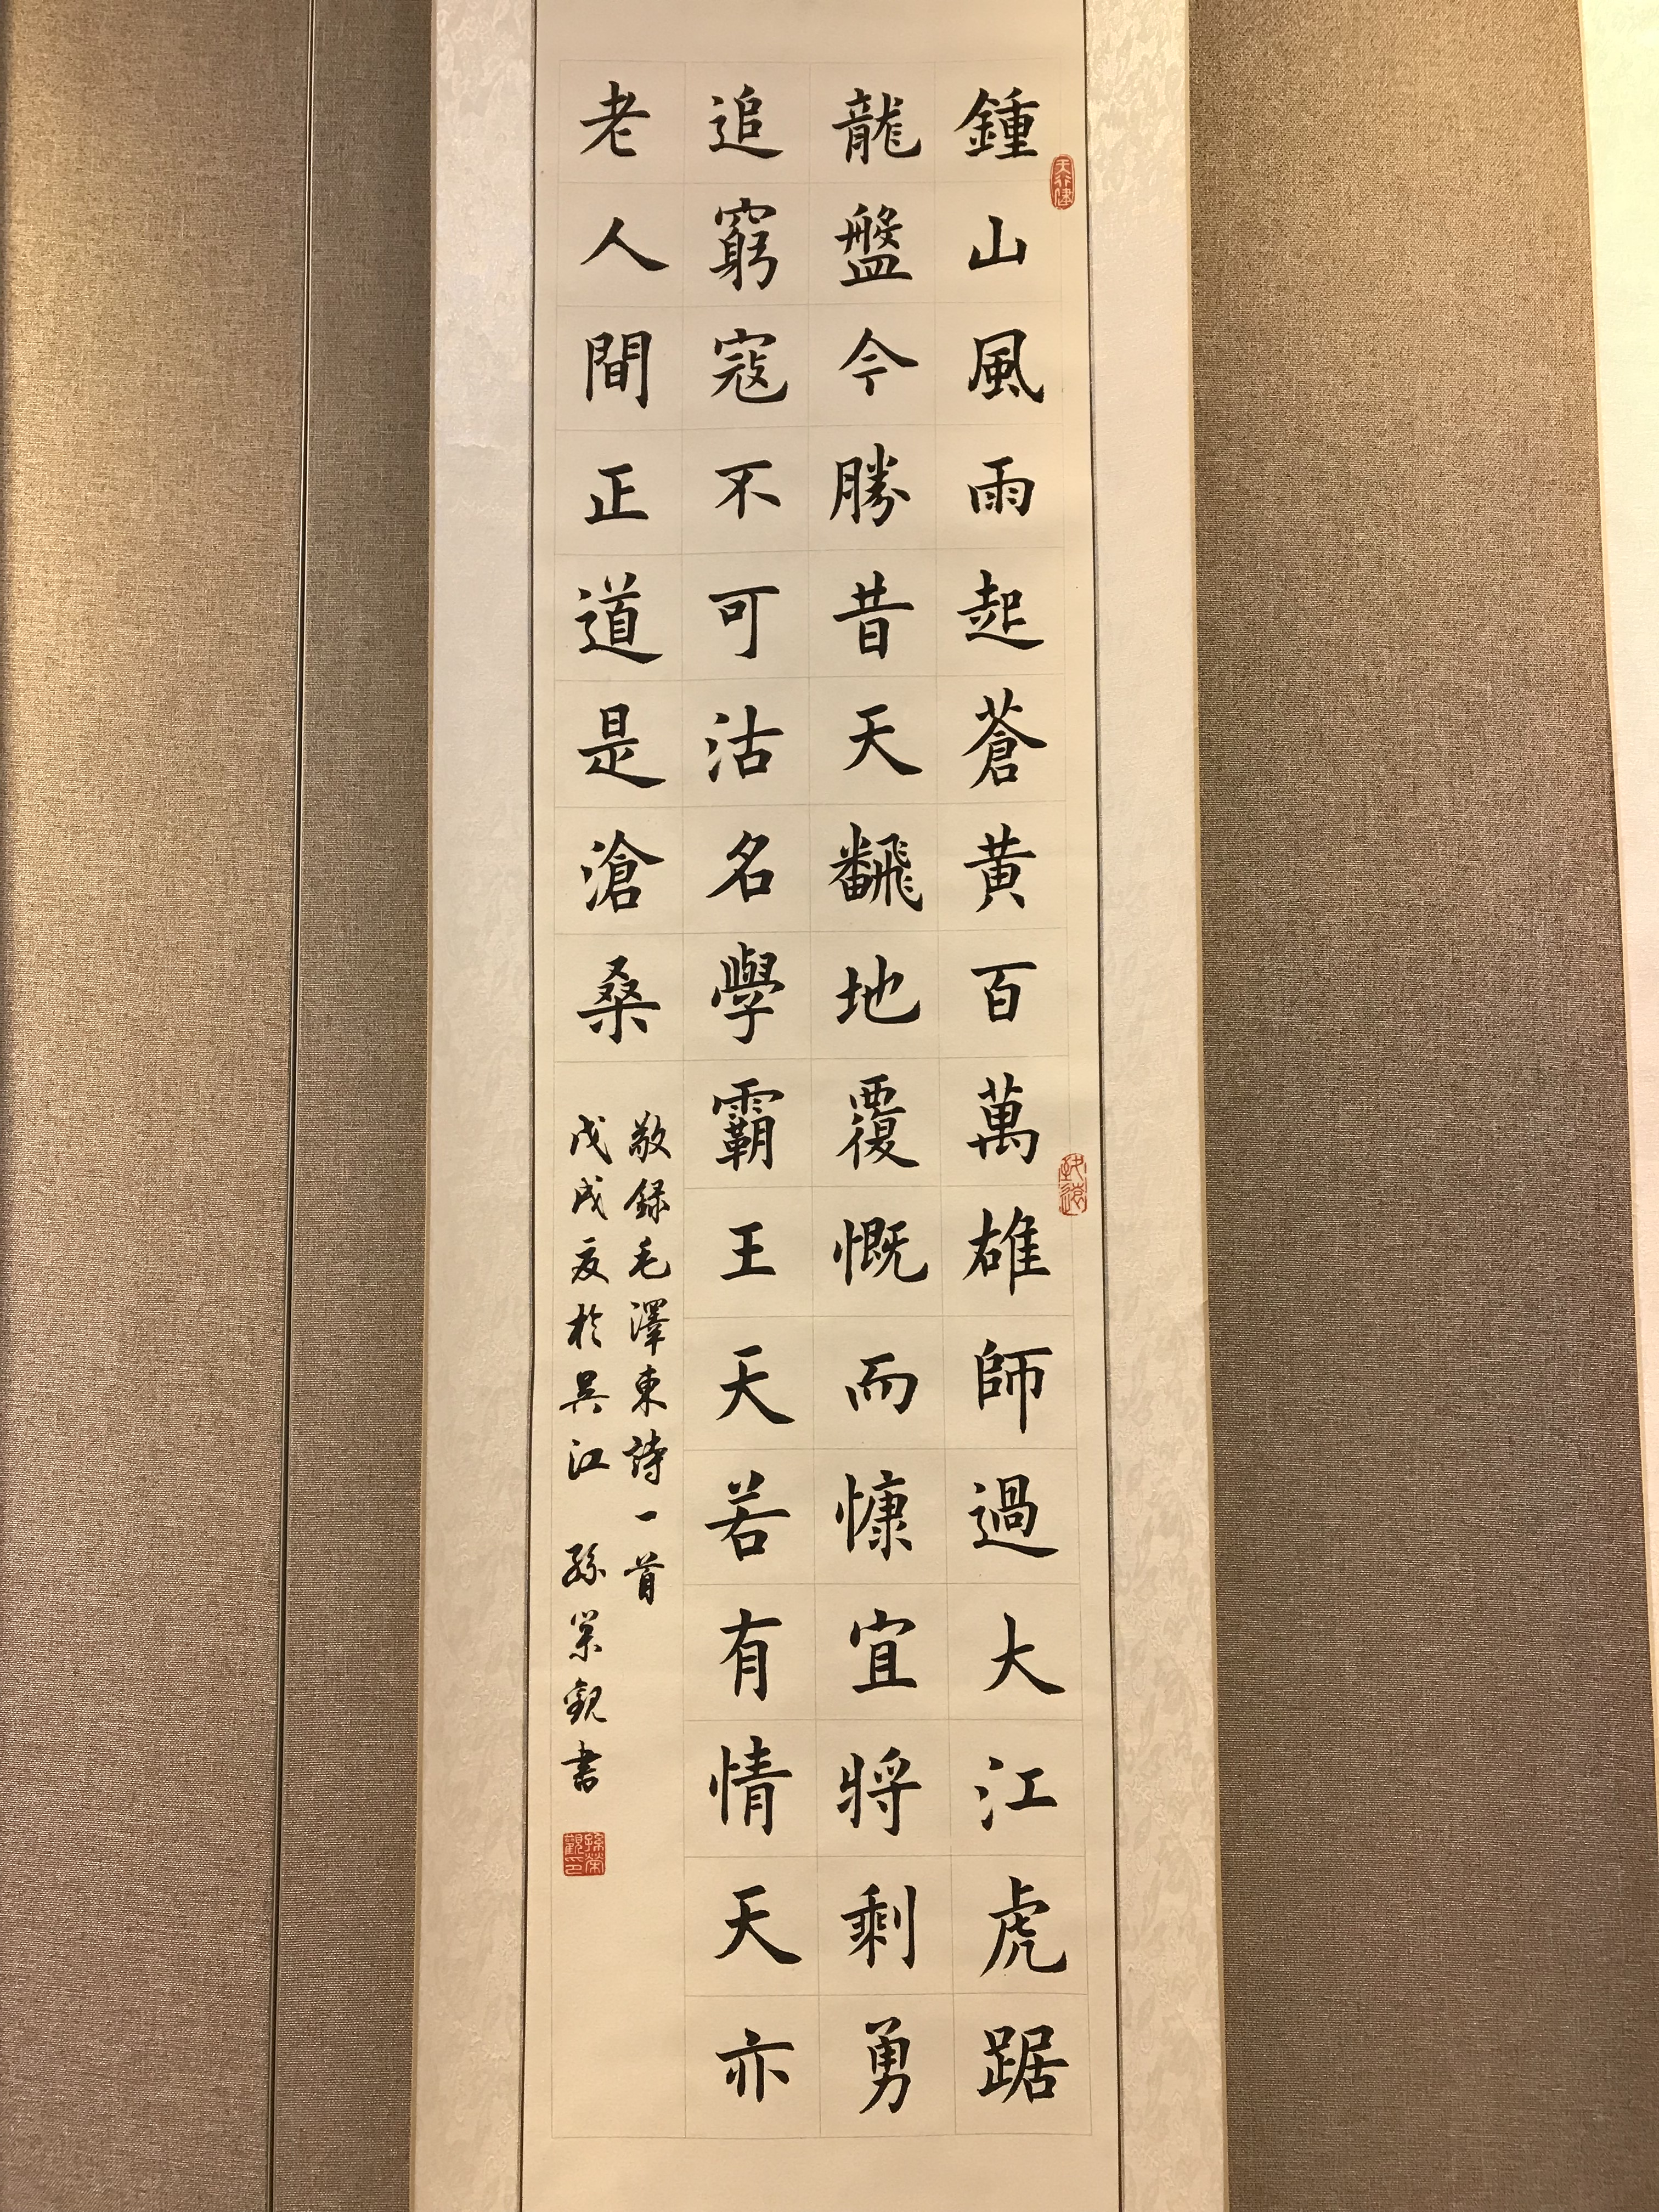 鍾山風雨起蒼黃百萬雄師過大江虎踞
龍盤今勝昔天飜地覆慨而慷宜將剩勇
追窮寇不可沽名學霸王天若有情天亦
老人間正道是滄桑
敬録毛澤東詩一首
戊戌夏於吳江 孫榮觀書
天行健
致遠
孫榮觀印